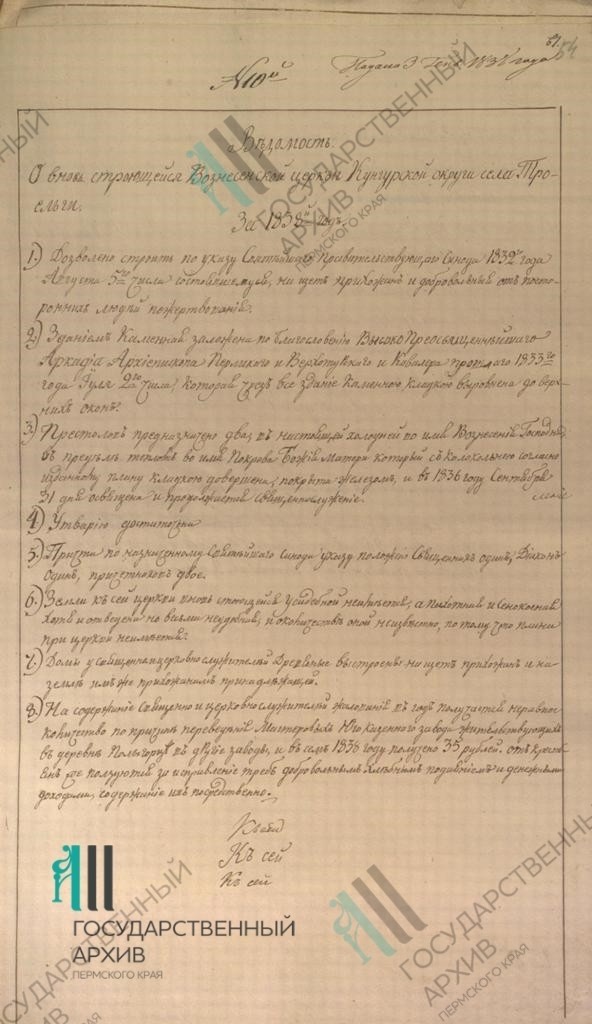 № 10й
Подана 3 Генв. 1838 года
54
Вѣдомость.
О вновь строющейся Вознесенской церкви Кунгурской округи села Тро-
ельги.
За 1838й годъ.
1.) Дозволено строить по указу Святѣйшаго Правительствующаго Синода 1832 года
Августа 5го числа состоявшемуся, на щетъ прихожанъ и добровольныя отъ посто-
ронних людей пожертвованія.
2.) Зданіемъ Каменная заложена по благословенію Высоко Преосвященнѣйшаго
Аркадія Архіепископа Пермскаго и Верхотурскаго и Кавалера прошлаго 1833го
года Іуля 2го числа, которая чрезъ все зданіе каменною кладкою выровнена до верх-
нихъ оконъ.
3.) Престоловъ предназначено два, въ настоящей холодной во имя Вознесенія Господня,
въ предѣлѣ тепломъ во имя Покрова Божіей Матери который съ колокольнею согласно
изданному плану кладкою довершена, покрыта железомъ, и въ 1836 году Сентября
31 дня освящена и продолжается священнослуженіе.
4.) Утварію достаточна
5.) Причта по назначенному Святѣйшаго Синода указу положено Священникъ одинъ, Діаконъ
одинъ, причетниковъ двое.
6.) Земли къ сей церкви вновь строющейся Усадебной неимѣется, а пахотная и сенокосная
хотя и отведена но весьма неудобная, и количество оной неизвѣстно, по тому что плана
при церкви неимѣется.
7.) Домы у священноцерковнослужителей Деревяные выстроены на щетъ прихожанъ и на
земли имъ же прихожанамъ принадлежащей.
8.) На содержаніе священно и церковнослужителей жалованія въ годъ получается неравное
количество по причинѣ переведенія Мастеровыхъ Юго казенного завода жительствующихъ
въ деревнѣ въ другіе заводы, и въ семъ 1838 году получено 35 рублей. отъ кресть-
янъ же пользуются за исправленіе требъ добровольнымъ хлѣбнымъ подаяніемъ и денежными
доходами, содержаніе ихъ посредственно.
Къ сей
Къ сей
ГОСУДАРСТВЕННЫЙ
АРХИВ
ПЕРМСКОГО КРАЯ